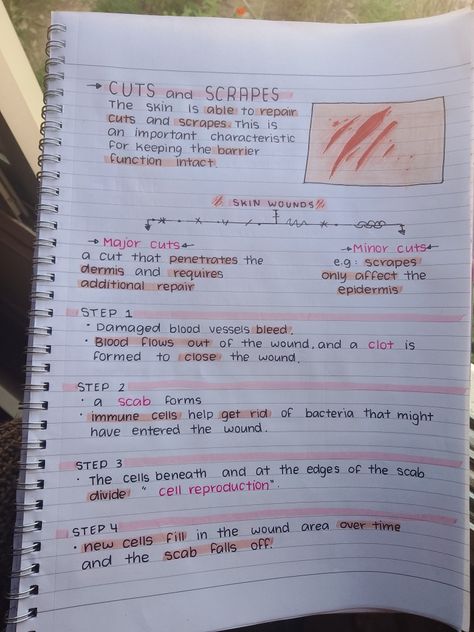 → CUTS and SCRAPES
The skin is able to repair
cuts and scrapes. This is
an important characteristic
for keeping the barrier
function intact.
SKIN WOUNDS
→ Major cuts ←
a cut that penetrates the
dermis and requires
additional repair
→ Minor cuts ←
e.g: scrapes
only affect the
epidermis
STEP 1
· Damaged blood vessels bleed.
· Blood flows out of the wound, and a clot is
formed to close the wound.
STEP 2
· a scab forms
· immune cells help get rid of bacteria that might
have entered the wound.
STEP 3
· The cells beneath and at the edges of the scab
divide " cell reproduction".
STEP 4
· new cells fill in the wound area over time
and the scab falls off.